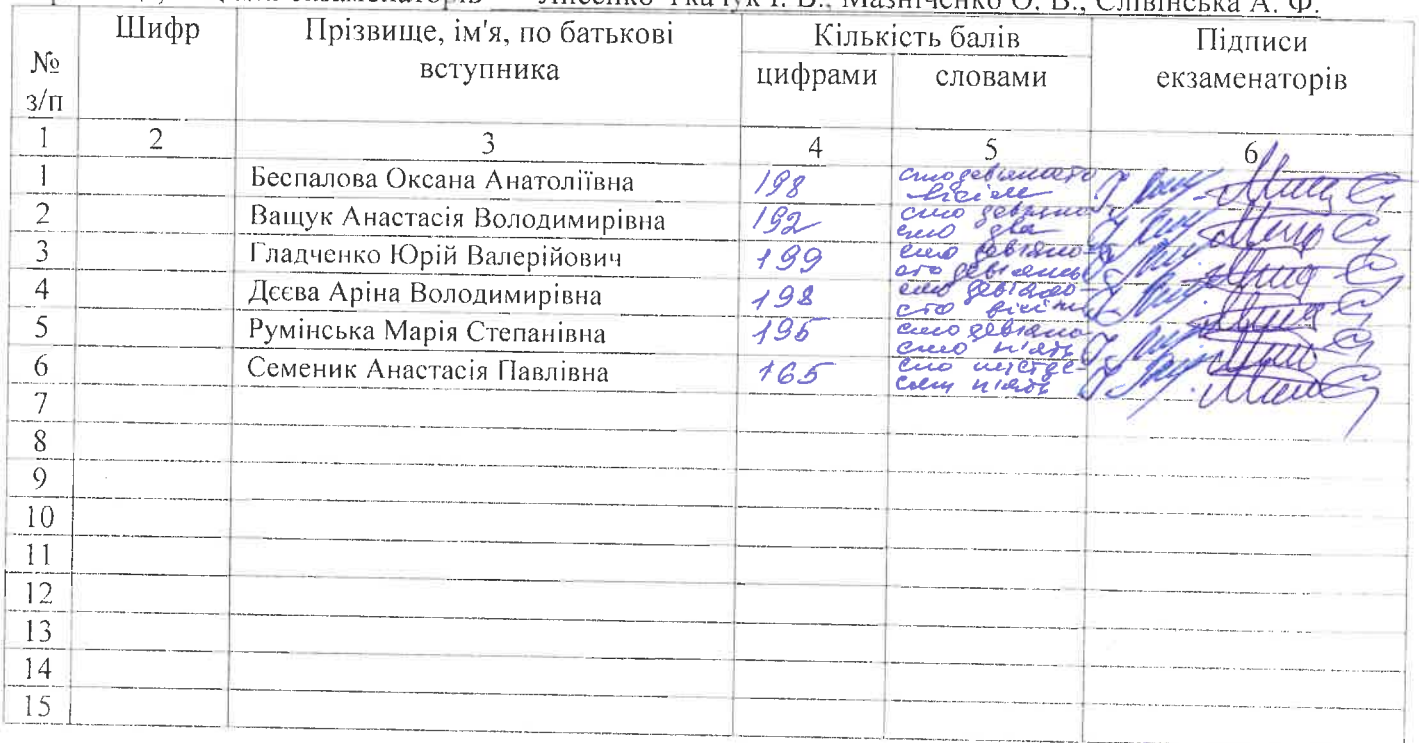 екзаменаторів Лисенко-Ткачук І. В., Мазніченко О. В., Слівінська А. Ф.
№ з/п Шифр Прізвище, ім'я, по батькові вступника Кількість балів Підписи екзаменаторів
цифрами словами
1 2 3 4 5 6
1 Беспалова Оксана Анатоліївна 198 сто девяносто вісім
2 Ващук Анастасія Володимирівна 192 сто девяно сто два
3 Гладченко Юрій Валерійович 199 сто девяно- сто девять
4 Дєєва Аріна Володимирівна 198 сто девяно сто вісім
5 Румінська Марія Степанівна 195 сто девяно сто п'ять
6 Семеник Анастасія Павлівна 165 сто шістде- сят п'ять
7
8
9
10
11
12
13
14
15